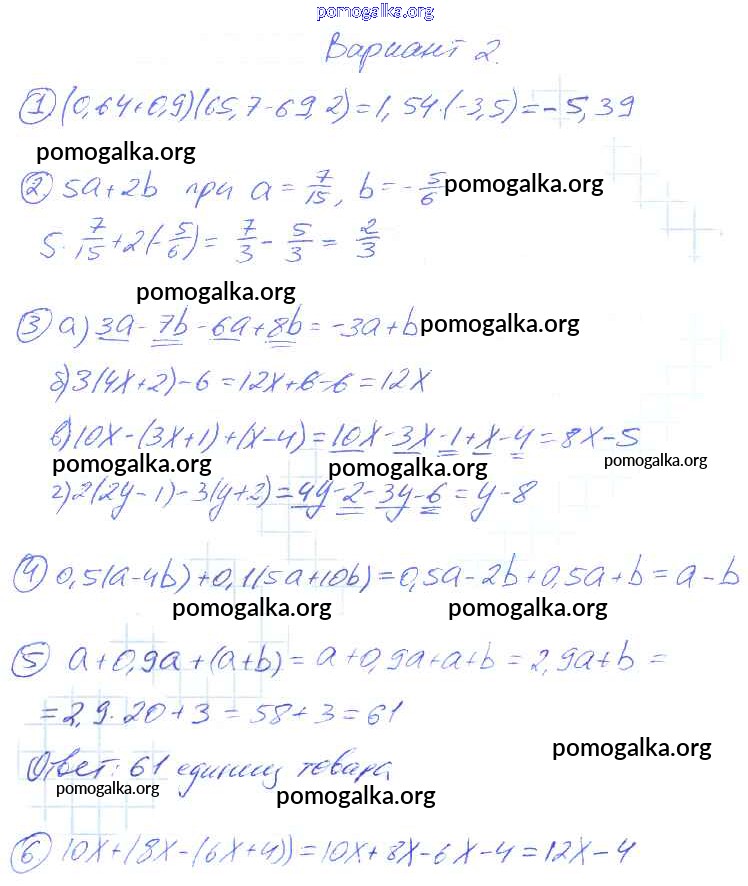 pomogalka.org
Вариант 2.
1 (0,64+0,9)(65,7-69,2)=1,54·(-3,5)=-5,39
pomogalka.org
2 5a+2b при a=7/15, b=-5/6 pomogalka.org
5·7/15+2(-5/6)=7/3-5/3=2/3
pomogalka.org
3 а) 3a-7b-6a+8b=-3a+b pomogalka.org
б) 3(4x+2)-6=12x+6-6=12x
в) 10x-(3x+1)+(x-4)=10x-3x-1+x-4=8x-5
pomogalka.org pomogalka.org pomogalka.org
г) 2(2y-1)-3(y+2)=4y-2-3y-6=y-8
4 0,5(a-4b)+0,1(5a+10b)=0,5a-2b+0,5a+b=a-b
pomogalka.org pomogalka.org
5 a+0,9a+(a+b)=a+0,9a+a+b=2,9a+b=
=2,9·20+3=58+3=61
pomogalka.org
Ответ: 61 единиц товара
pomogalka.org pomogalka.org
6 10x+(8x-(6x+4))=10x+8x-6x-4=12x-4